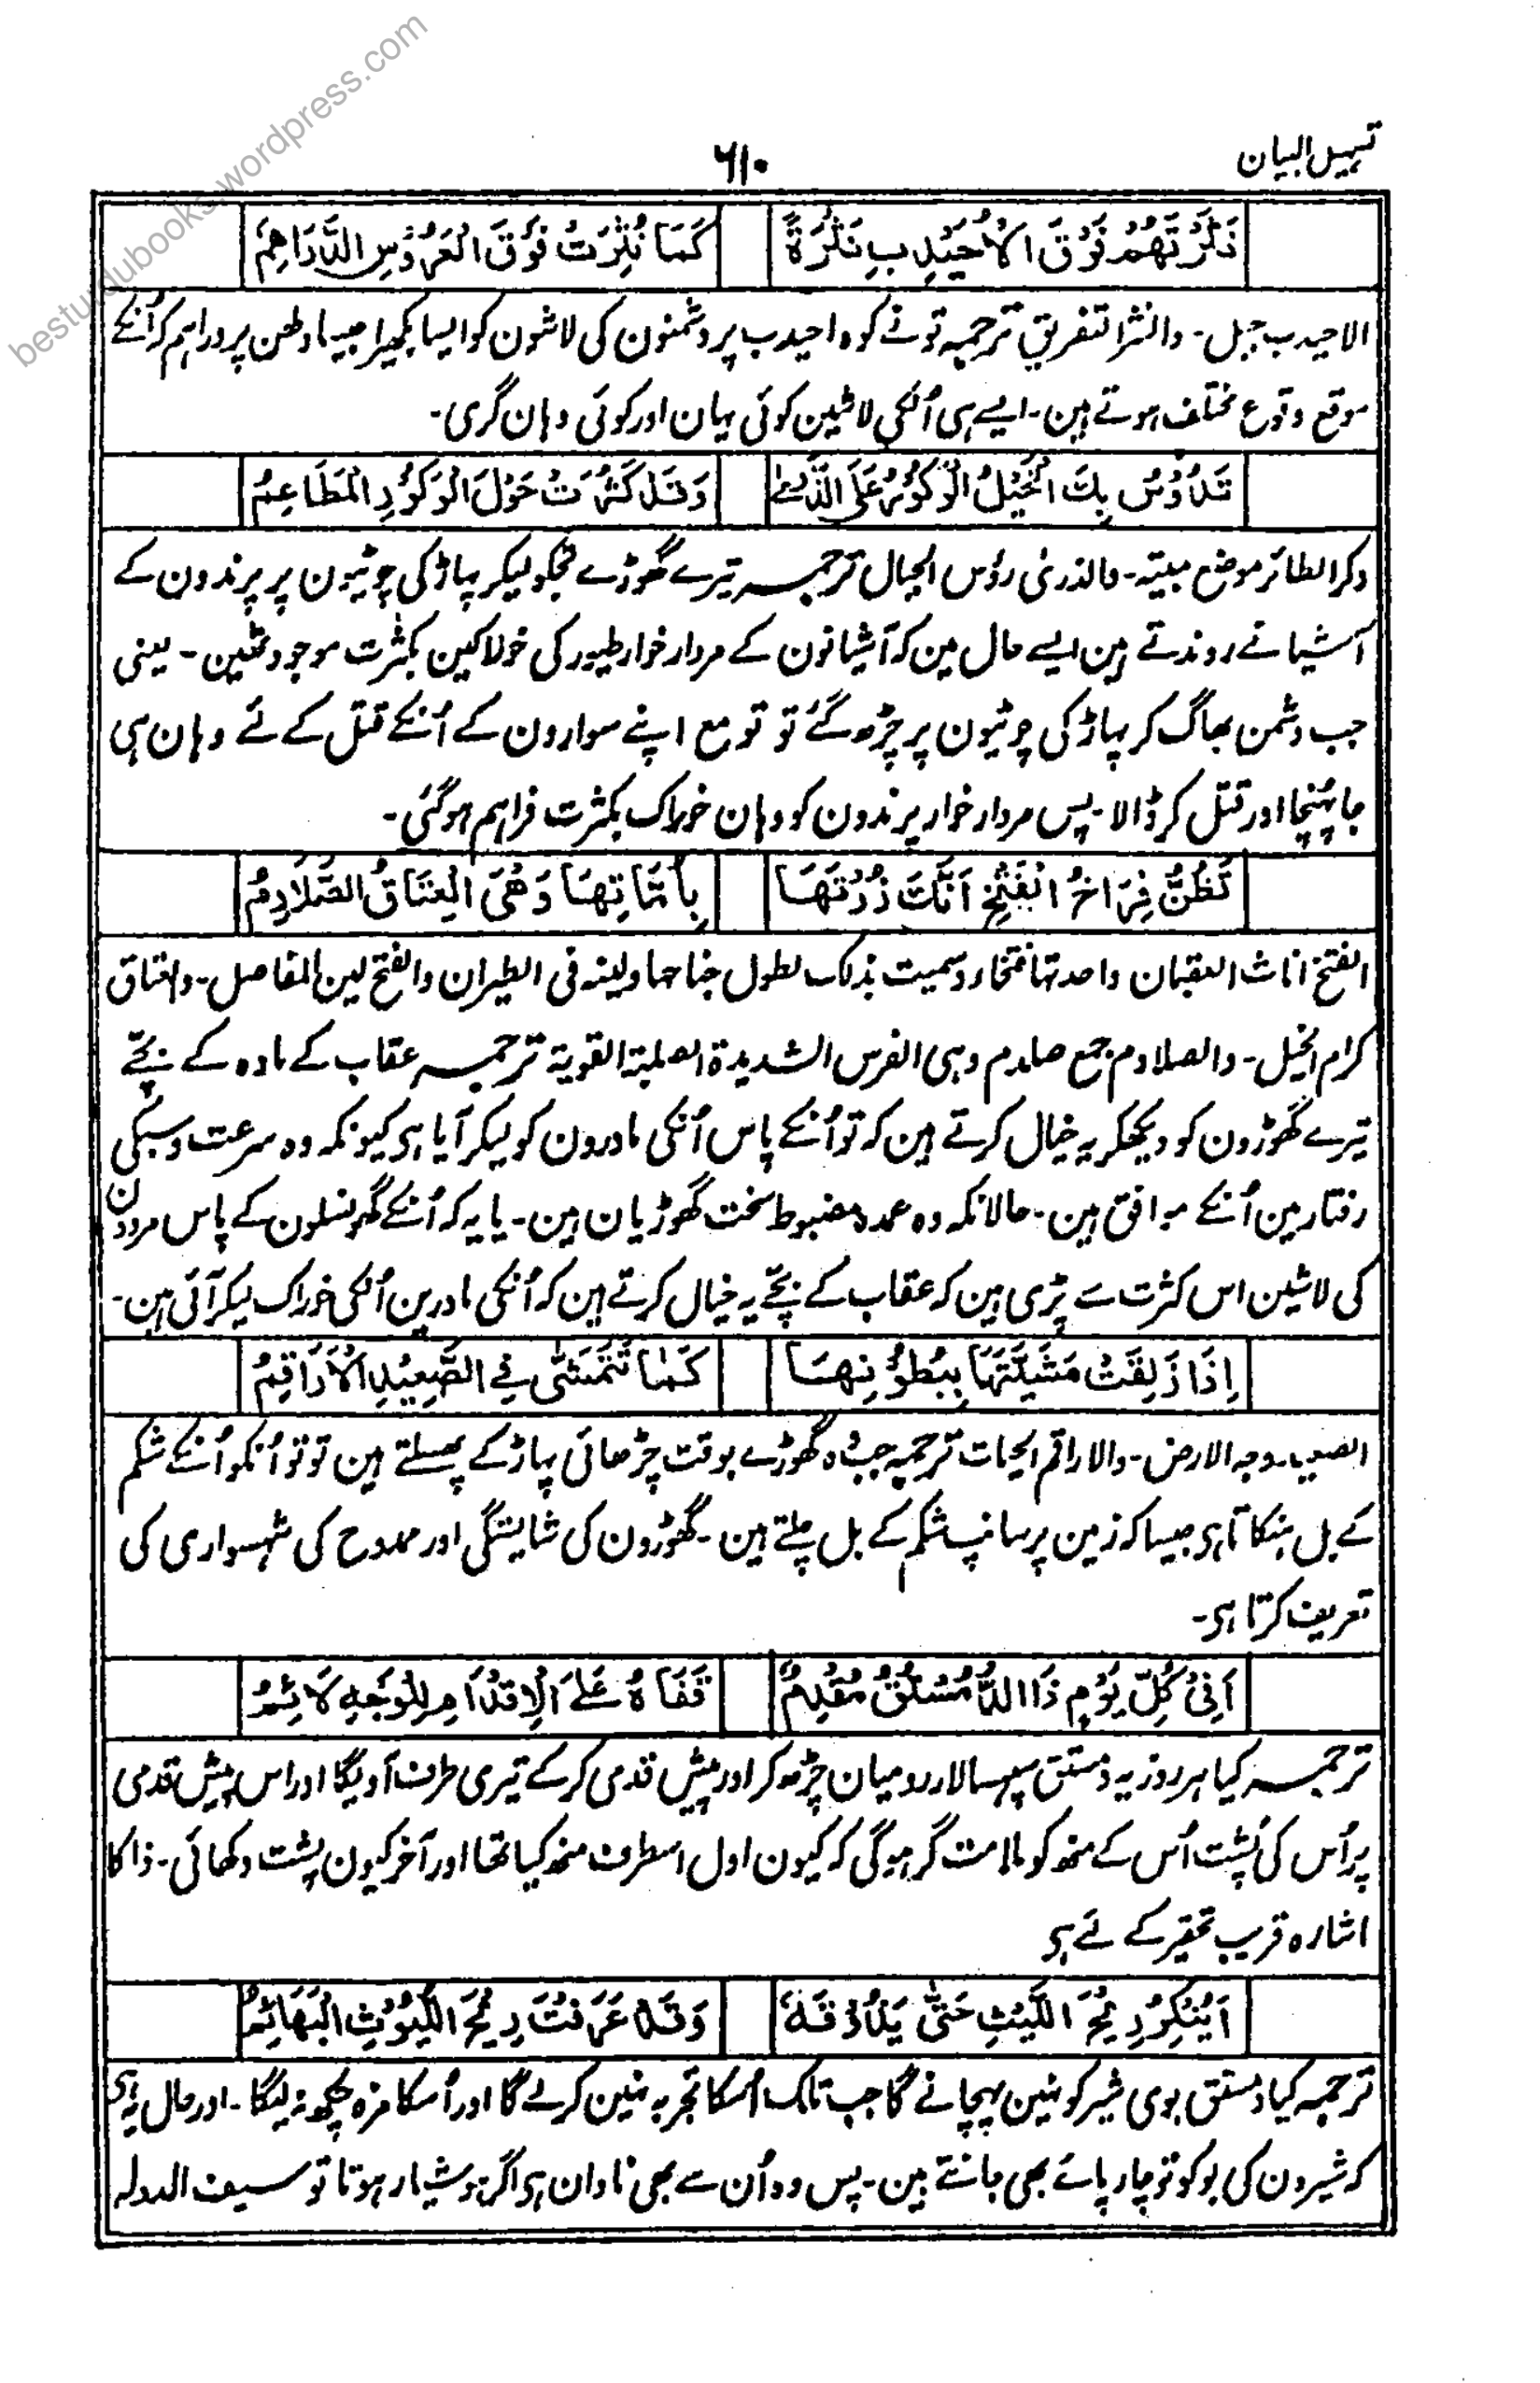 تسہیل البیان
۶۱۰
نَثَرْتَهُمْ فَوْقَ الْاُحَيْدِبِ نَثْرَةً كَمَا نُثِرَتْ فَوْقَ الْعَرُوْسِ الدَّرَاهِمُ
الاحیدب جبل۔ والنثر التفریق ترجمہ تونے کوہ احیدب پر دشمنون کی لاشون کو ایسا بکھیرا جیسا دولھن پر دراہم کہ اُنکے
موقع وقوع مختلف ہوتے ہین۔ ایسے ہی اُنکی لاشین کوئی یہان اور کوئی وہان گری۔
تَدُوْسُ بِكَ الْخَيْلُ الْوُكُوْرَ عَلَى الذُّرٰى وَقَدْ كَثُرَتْ حَوْلَ الْوُكُوْرِ الْمَطَاعِمُ
وکر الطائر موضع مبیتہ۔ والذریٰ رؤس الجبال ترجمہ تیرے گھوڑے تجکو لیکر پہاڑ کی چوٹیون پر پرندون کے
آشیانے روندتے ہین ایسے حال مین کہ آشیانون کے مردار خوار طیور کی خوراکین بکثرت موجود تھین۔ یعنی
جب دشمن بھاگ کر پہاڑ کی چوٹیون پر چڑھ گئے تو تو مع اپنے سوارون کے اُنکے قتل کے لئے وہان ہی
جا پہنچا اور قتل کر ڈالا۔ پس مردار خوار پرندون کو وہان خوراک بکثرت فراہم ہو گئی۔
تَظُنُّ فِرَاخُ الْفُتْخِ اَنَّكَ زُرْتَهَا بِاُمَّاتِهَا وَهْيَ الْعِتَاقُ الصَّلَادِمُ
الفتخ اناث العقبان واحدتہا فتخاء وسمیت بذلک لطول جناحہا ولینہ فی الطیران والفتخ لین المفاصل۔ والعتاق
کرام الخیل۔ والصلادم جمع صلدم وہی الفرس الشدیدۃ الصلبۃ القویۃ ترجمہ عقاب کے مادہ کے بچّے
تیرے گھوڑون کو دیکھکر یہ خیال کرتے ہین کہ تو اُنکے پاس اُنکی مادرون کو لیکر آیا ہی کیونکہ وہ سرعت وسبکی
رفتار مین اُنکے موافق ہین۔ حالانکہ وہ عمدہ مضبوط سخت گھوڑیان ہین۔ یا یہ کہ اُنکے گھونسلون کے پاس مردون
کی لاشین اس کثرت سے پڑی ہین کہ عقاب کے بچّے یہ خیال کرتے ہین کہ اُنکی مادرین اُنکی خوراک لیکر آئی ہین۔
اِذَا زَلِقَتْ مَشَّيْتَهَا بِبُطُوْنِهَا كَمَا تَتَمَشّٰى فِي الصَّعِيْدِ الْاَرَاقِمُ
الصعید وجہ الارض۔ والاراقم الحیات ترجمہ جب وہ گھوڑے بوقت چڑھائی پہاڑ کے پھسلتے ہین تو تو اُنکو اُنکے شکم
کے بل ہنکاتا ہی جیسا کہ زمین پر سانپ شکم کے بل چلتے ہین۔ گھوڑون کی شایستگی اور ممدوح کی شہسواری کی
تعریف کرتا ہی۔
اَفِيْ كُلِّ يَوْمٍ ذَا الدُّمُسْتُقُ مُقْدِمٌ قَفَاهُ عَلَى الْاِقْدَامِ لِلْوَجْهِ لَائِمُ
ترجمہ کیا ہر روز یہ دمستق سپہ سالار رومیان چڑھ کر اور پیش قدمی کرکے تیری طرف آویگا اور اس پیش قدمی
پر اُس کی پُشت اُس کے منھ کو ملامت گر ہو گی کہ کیون اول اسطرف منھ کیا تھا اور آخر کیون پشت دکھائی۔ ذا کا
اشارہ قریب تحقیر کے لئے ہی
اَيُنْكِرُ رِيْحَ اللَّيْثِ حَتّٰى يَذُوْقَهٗ وَقَدْ عَرَفَتْ رِيْحَ اللُّيُوْثِ الْبَهَائِمُ
ترجمہ کیا دمستق بوی شیر کو نہین پہچانے گا جب تلک اُسکا تجربہ نہین کرلے گا اور اُسکا مزہ چکھ نہ لیگا۔ اور حال یہ ہی
کہ شیرون کی بو کو تو چارپائے بھی جانتے ہین۔ پس وہ اُن سے بھی نادان ہی اگر ہوشیار ہوتا تو سیف الدولہ
besturdubooks.wordpress.com